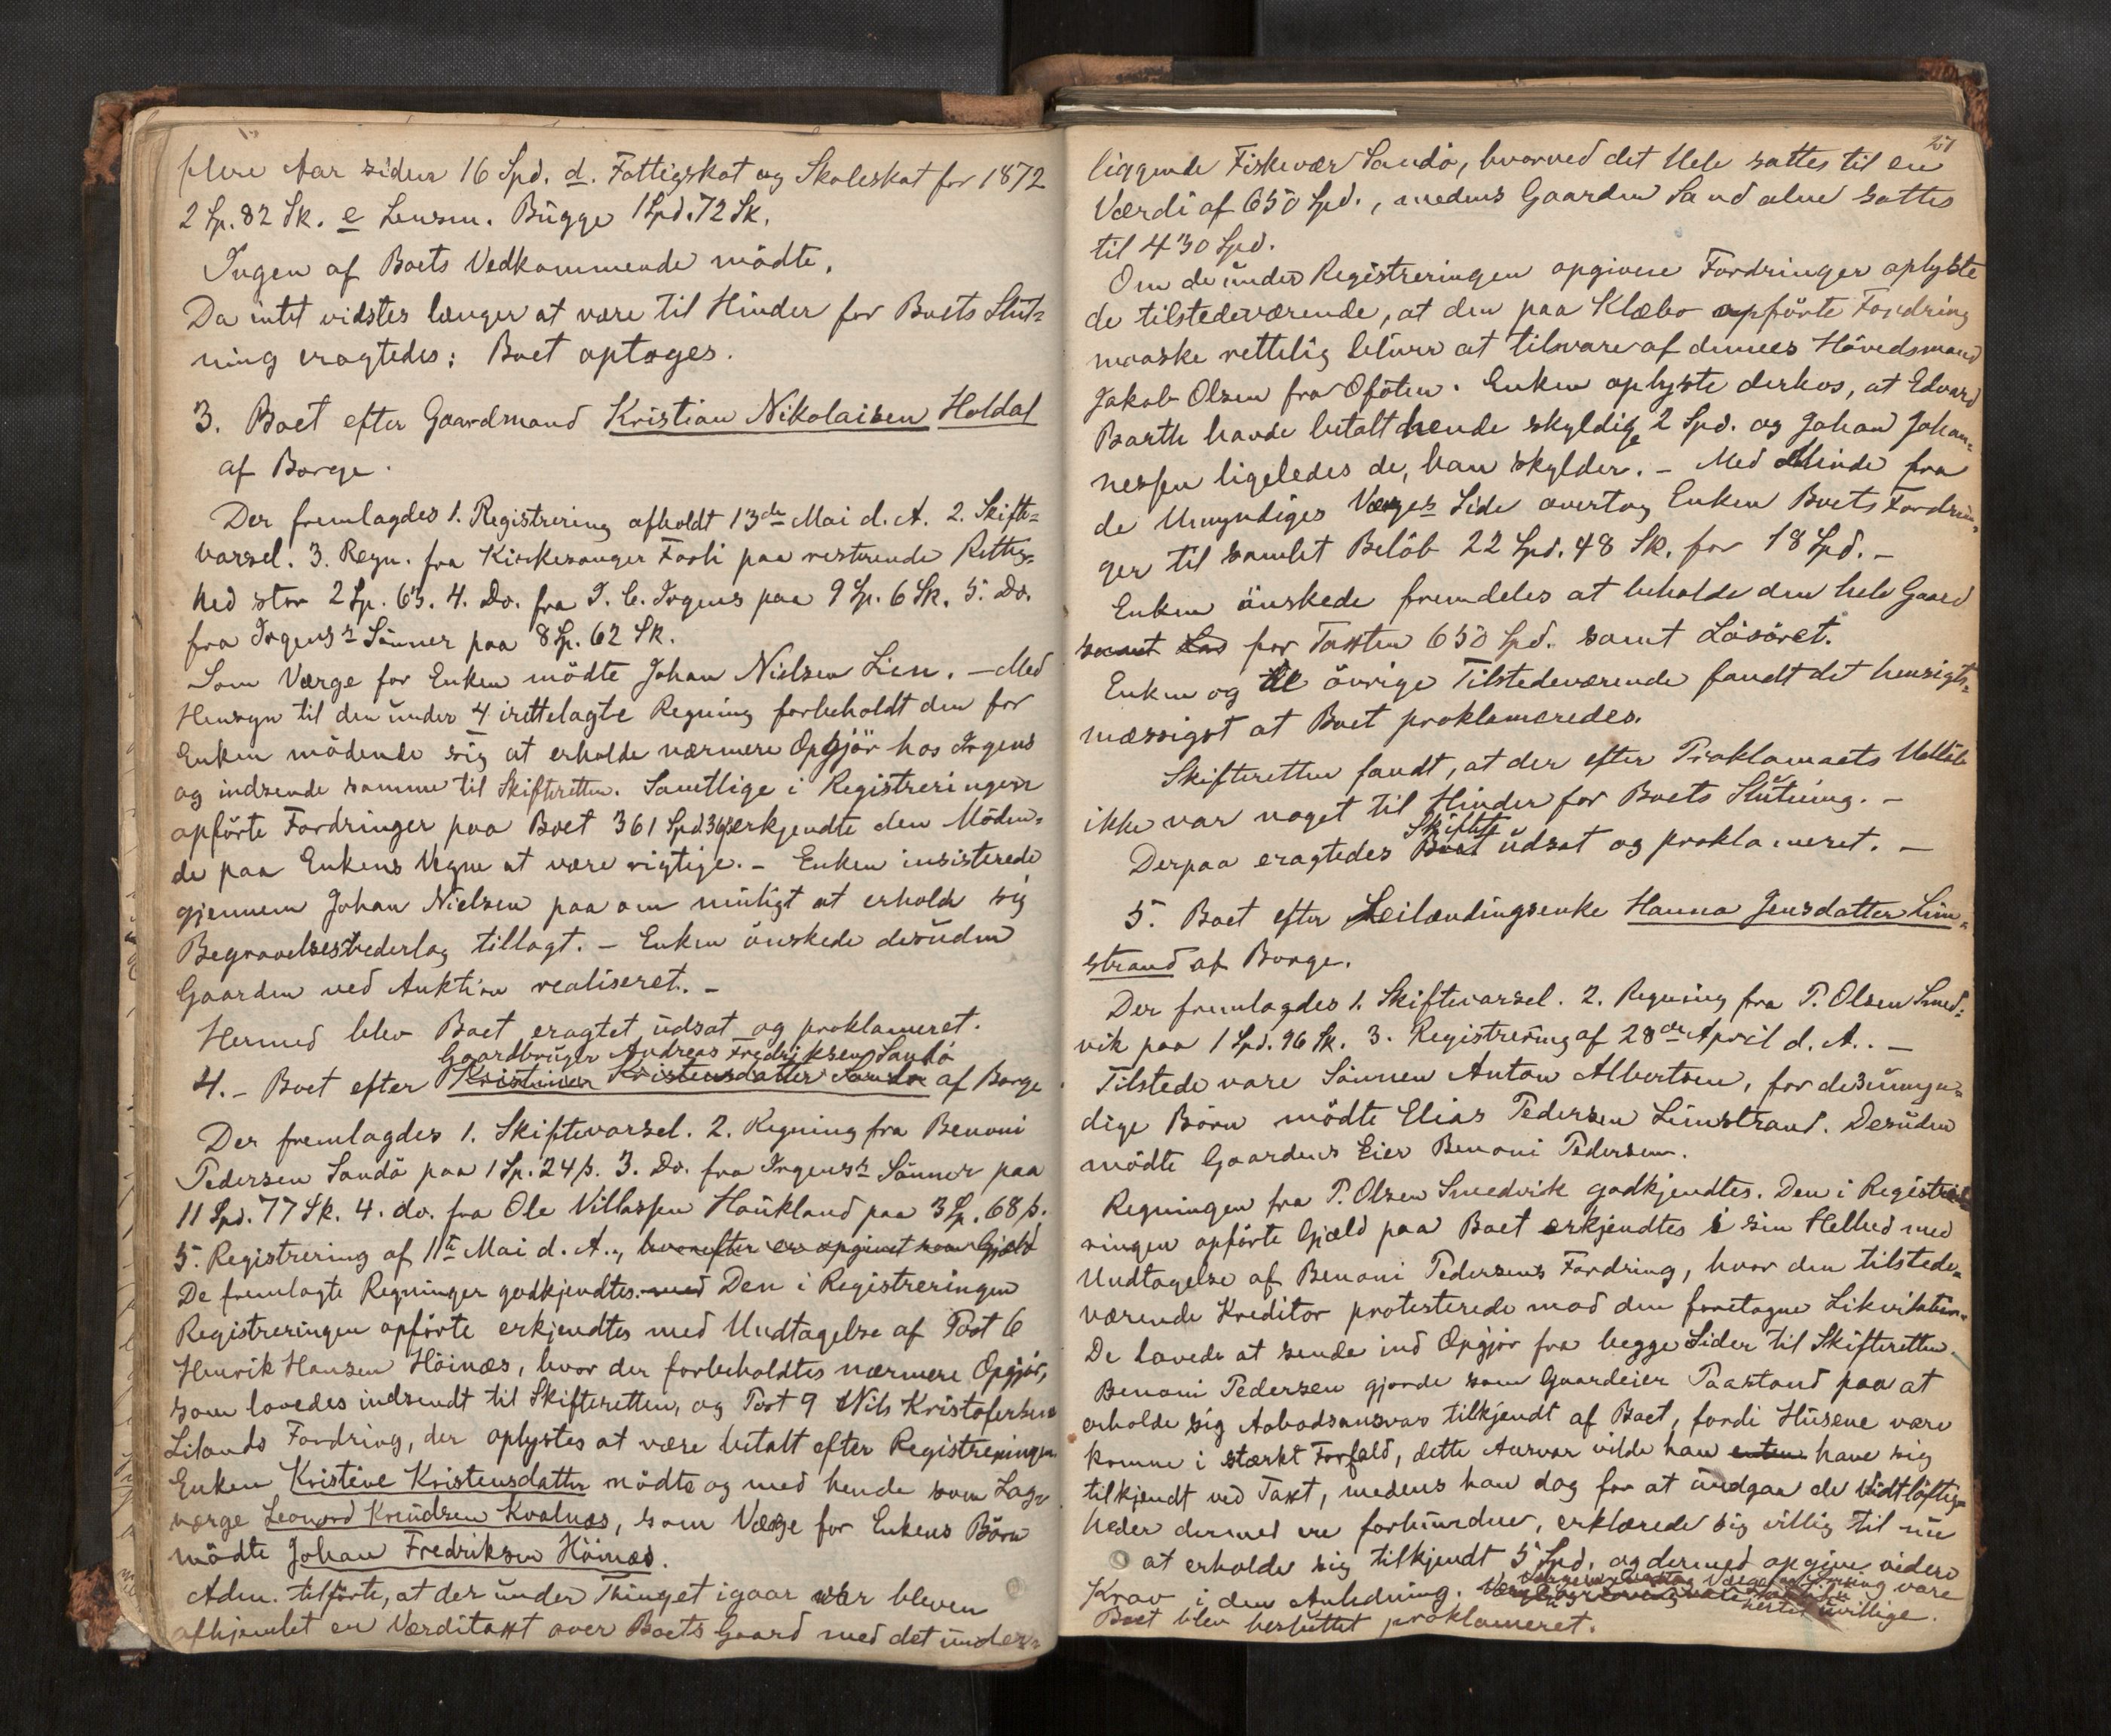 flere Aar siden 16 Spd. d. Fattigskat og Skoleskat for 1872
2 Sp. 82 Sk. e Lensm. Bügge 1 Spd. 72 Sk.
Ingen af Boets Vedkommende mödte.
Da intet vidstes længer at være til Hinder for Boets Slut=
ning eragtedes: Boet optages.
3. Boet efter Gaardmand Kristian Nikolaisen Holdal
af Borge.
Der fremlagdes 1. Registrering afholdt 13de Mai d. A. 2. Skifte=
varsel. 3. Regn. fra Kirkesanger Forli paa resterende Rettig=
hed stor 2 Sp. 63. 4. Do. fra I. C. Irgens paa 9 Sp. 6 Sk. 5. Do.
fra Irgens's Sönner paa 8 Sp. 62 Sk.
Som Værge for Enken mödte Johan Nielsen Lien. – Med
Hensyn til den under 4 irettelagte Regning forbeholdt den for
Enken mödende sig at erholde nærmere Opgjör hos Irgens
og indsende samme til Skifteretten. Samtlige i Registreringen
opförte Fordringer paa Boet 361 Spd. 36 erkjendte den Möden=
de paa Enkens Vegne at være rigtige. – Enken insisterede
gjennem Johan Nielsen paa om muligt at erholde sig
Begravelsesvederlag tillagt. – Enken önskede desüden
Gaarden ved Auktion realiseret. –
Hermed blev Boet eragtet üdsat og proklameret.
Gaardbrüger Andreas Fredriksen Sandö
4. – Boet efter Kristinen Kristensdatter Sandö af Borge
Der fremlagdes 1. Skiftevarsel. 2. Regning fra Benoni
Pedersen Sandö paa 1 Sp. 24 ß. 3. Do. fra Irgens's Sönner paa
11 Spd. 77 Sk. 4. do. fra Ole Villassen Haükland paa 3 Sp. 68 ß.
5. Registrering af 11te Mai d. A., hvorefter er opgivet som Gjæld
De fremlagte Regninger godkjendtes. med Den i Registreringen
Registreringen opförte erkjendtes med Undtagelse af Post 6
Henrik Hansen Höinæs, hvor der forbeholdtes nærmere Opgjör,
som lovedes indsendt til Skifteretten, og Post 9 Nils Kristofersens
Lilands Fordring, der oplystes at være betalt efter Registreringen
Enken Kristine Kristensdatter mödte og med hende som Lag=
værge Leonard Knüdsen Kvalnæs, som Værge for Enkens Börn
mödte Johan Fredriksen Höinæs.
Adm. tilförte, at der ünder Thinget igaar var bleven
afhjemlet en Værditaxt over Boets Gaard med det ünder=
27
liggende Fiskevær Sandö, hvorved det Hele sattes til en
Værdi af 650 Spd., medens Gaarden Sand alene sattes
til 430 Spd.
Om de ünder Registreringen opgivne Fordringer oplyste
de tilstedeværende, at den paa Klæbo opförte Fordring
maaske rettelig bliver at tilsvare af dennes Hövedsmand
Jakob Olsen fra Ofoten. Enken oplyste derhos, at Edvard
Barth havde betalt hende skyldige 2 Spd. og Johan Johan=
nessen ligeledes de, han skylder. – Med Minde fra
de Umyndiges Værges Side overtog Enken Boets Fordrin=
ger til samlet Belöb 22 Spd. 48 Sk. for 18 Spd. –
Enken önskede fremdeles at beholde den hele Gaard
samt for Taxten 650 Spd. samt Lösöret.
Enken og de övrige Tilstedeværende fandt det hensigts=
mæssigst at Boet proklameredes.
Skifteretten fandt, at der efter Proklamaets Udlöb
ikke var noget til Hinder for Boets Slütning. –
Skiftet
Derpaa eragtedes Boet üdsat og proklameret. –
5. Boet efter Leilændingsenke Hanna Jensdatter Lim=
strand af Borge.
Der fremlagdes 1. Skiftevarsel. 2. Regning fra P. Olsen Smed=
vik paa 1 Spd. 96 Sk. 3. Registrering af 28de April d. A.. –
Tilstede vare Sönnen Anton Albertsen, for de 3 ümyn=
dige Börn mödte Elias Pedersen Limstrand. Desüden
mödte Gaardens Eier Benoni Pedersen.
Regningen fra P. Olsen Smedvik godkjendtes. Den i Registre=
ringen opförte Gjæld paa Boet erkjendtes i sin Helhed med
Undtagelse af Benoni Pedersens Fordring, hvor den tilstede=
værende Kreditor protesterede mod den foretagne Likvidation.
De lovede at sende ind Opgjör fra begge Sider til Skifteretten.
Benoni Pedersen gjorde som Gaardeier Paastand paa at
erholde sig Aabodsansvar tilkjendt af Boet, fordi Hüsene vare
komne i stærkt Forfald, dette Ansvar vilde han enten have sig
tilkjendt ved Taxt, medens han dog for at ündgaa de Vidtlöftig=
heder dermed ere forbündne, erklærede sig villig til nü
at erholde sig tilkjendt 5 Spd. og dermed opgive videre
Krav i den Anledning. vare
üvillige.
Boet blev beslüttet proklameret.